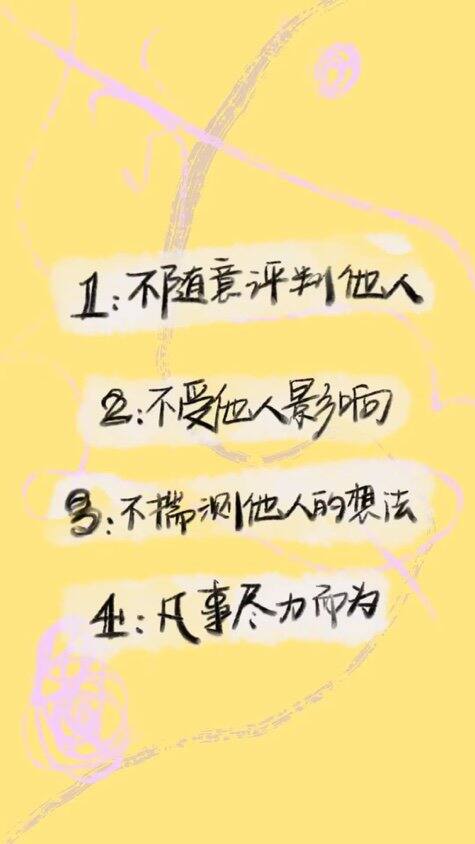 1:不随意评判他人
2:不受他人影响
3:不揣测他人的想法
4:凡事尽力而为